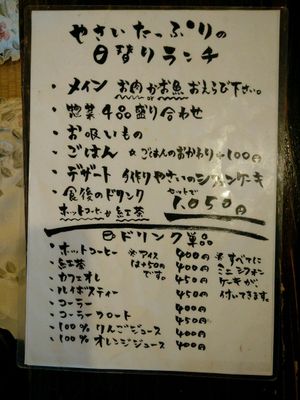 やさいたっぷりの
日替りランチ
・メイン お肉かお魚おえらび下さい。
or
・惣菜4品盛り合わせ
・お吸いもの
・ごはん ☆ごはんのおかわり+100円
・デザート 手作りやさいのシフォンケーキ
・食後のドリンク セットで
ホットコーヒー or 紅茶 1,050円
ドリンク単品
・ホットコーヒー ※アイスは+50円です。 400円 ※すべてにミニシフォンケーキが付いてきます。
・紅茶 400円
・カフェオレ 450円
・ルイボスティー 450円
・コーラー 400円
・コーラーフロート 450円
・100%りんごジュース 400円
・100%オレンジジュース 400円